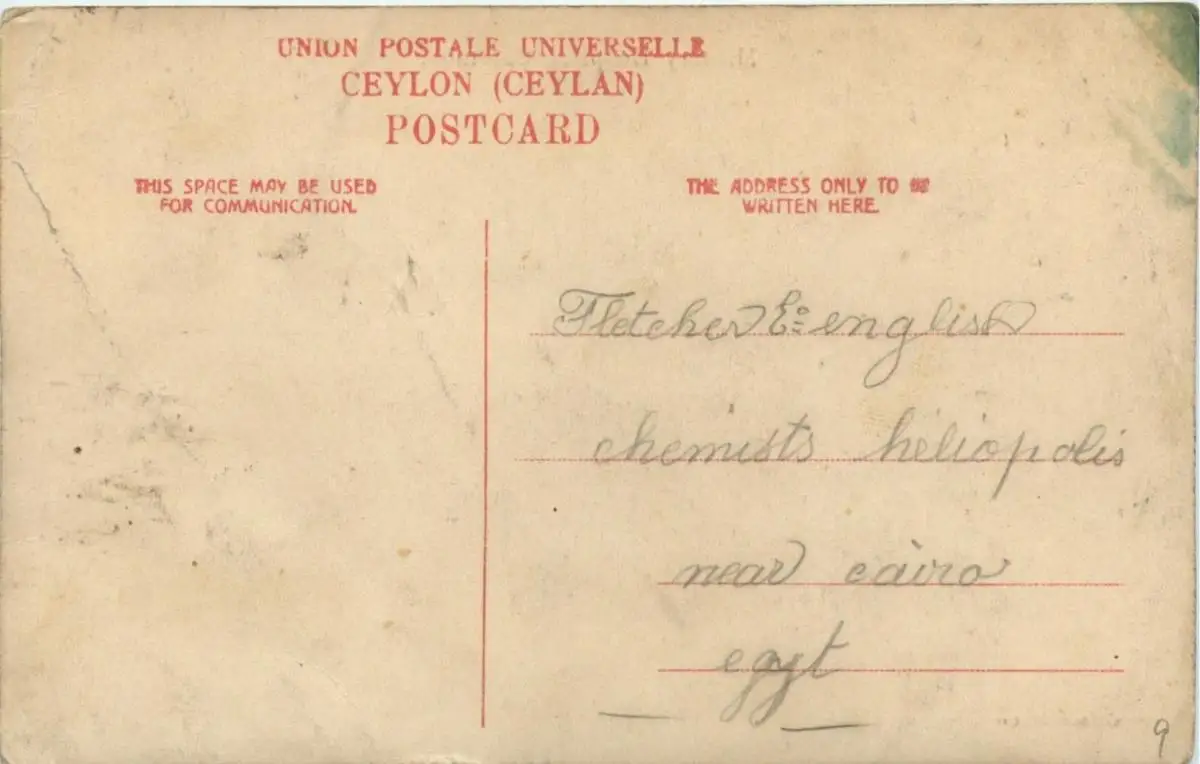 UNION POSTALE UNIVERSELLE
CEYLON (CEYLAN)
POSTCARD
THIS SPACE MAY BE USED
FOR COMMUNICATION.
THE ADDRESS ONLY TO BE
WRITTEN HERE.
Fletcher & english
chemists heliopolis
near cairo
egyt
9